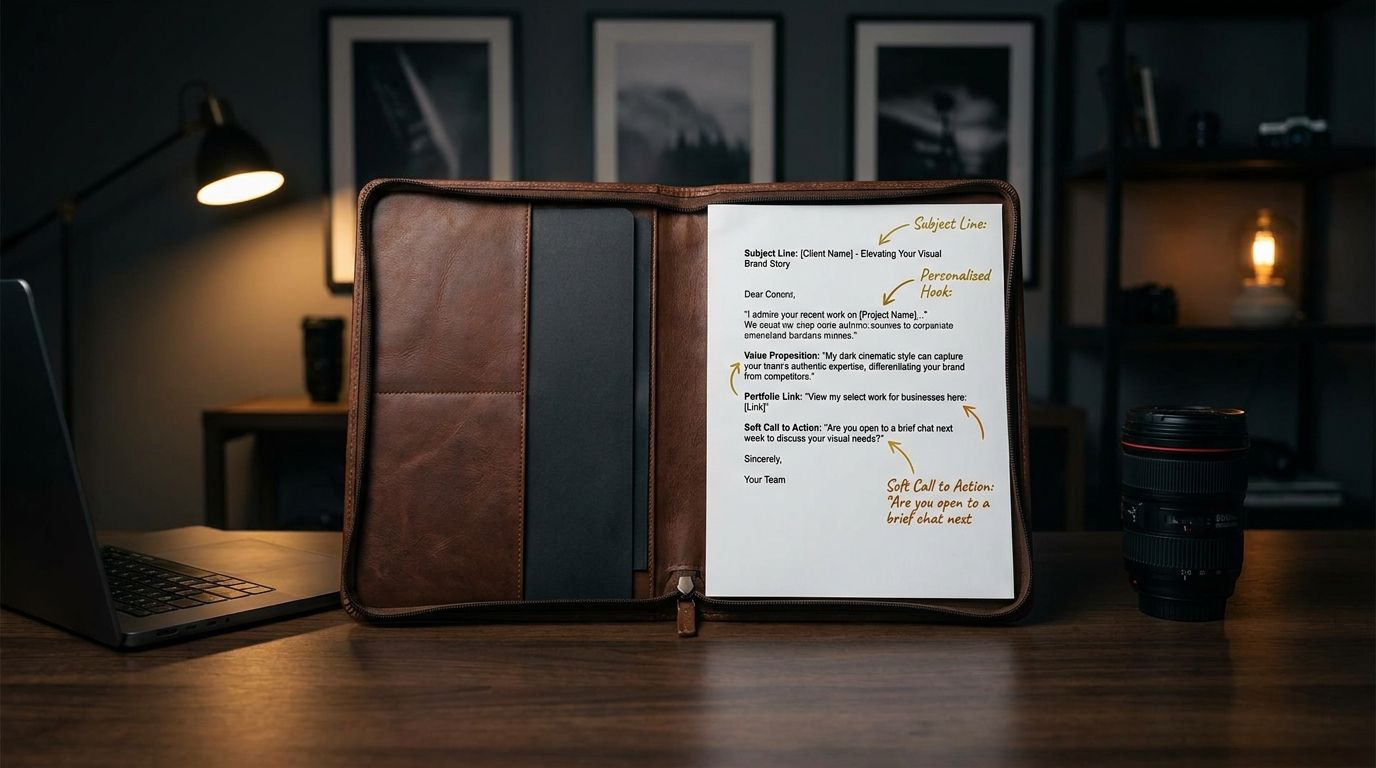 Subject Line:
Subject Line: [Client Name] - Elevating Your Visual
Brand Story
Personalised
Hook:
Dear
"I admire your recent work on [Project Name]..."
We
"My dark cinematic style can capture
Value Proposition: "My dark cinematic style can capture
your authentic expertise, differenliating your brand
from competitors."
Portfolie Link: "View my select work for businesses here:
[Link]"
Soft Call to Action: "Are you open to a brief chat next
week to discuss your visual needs?"
Sincerely,
Your Team
Soft Call to Action:
"Are you open to a
brief chat next